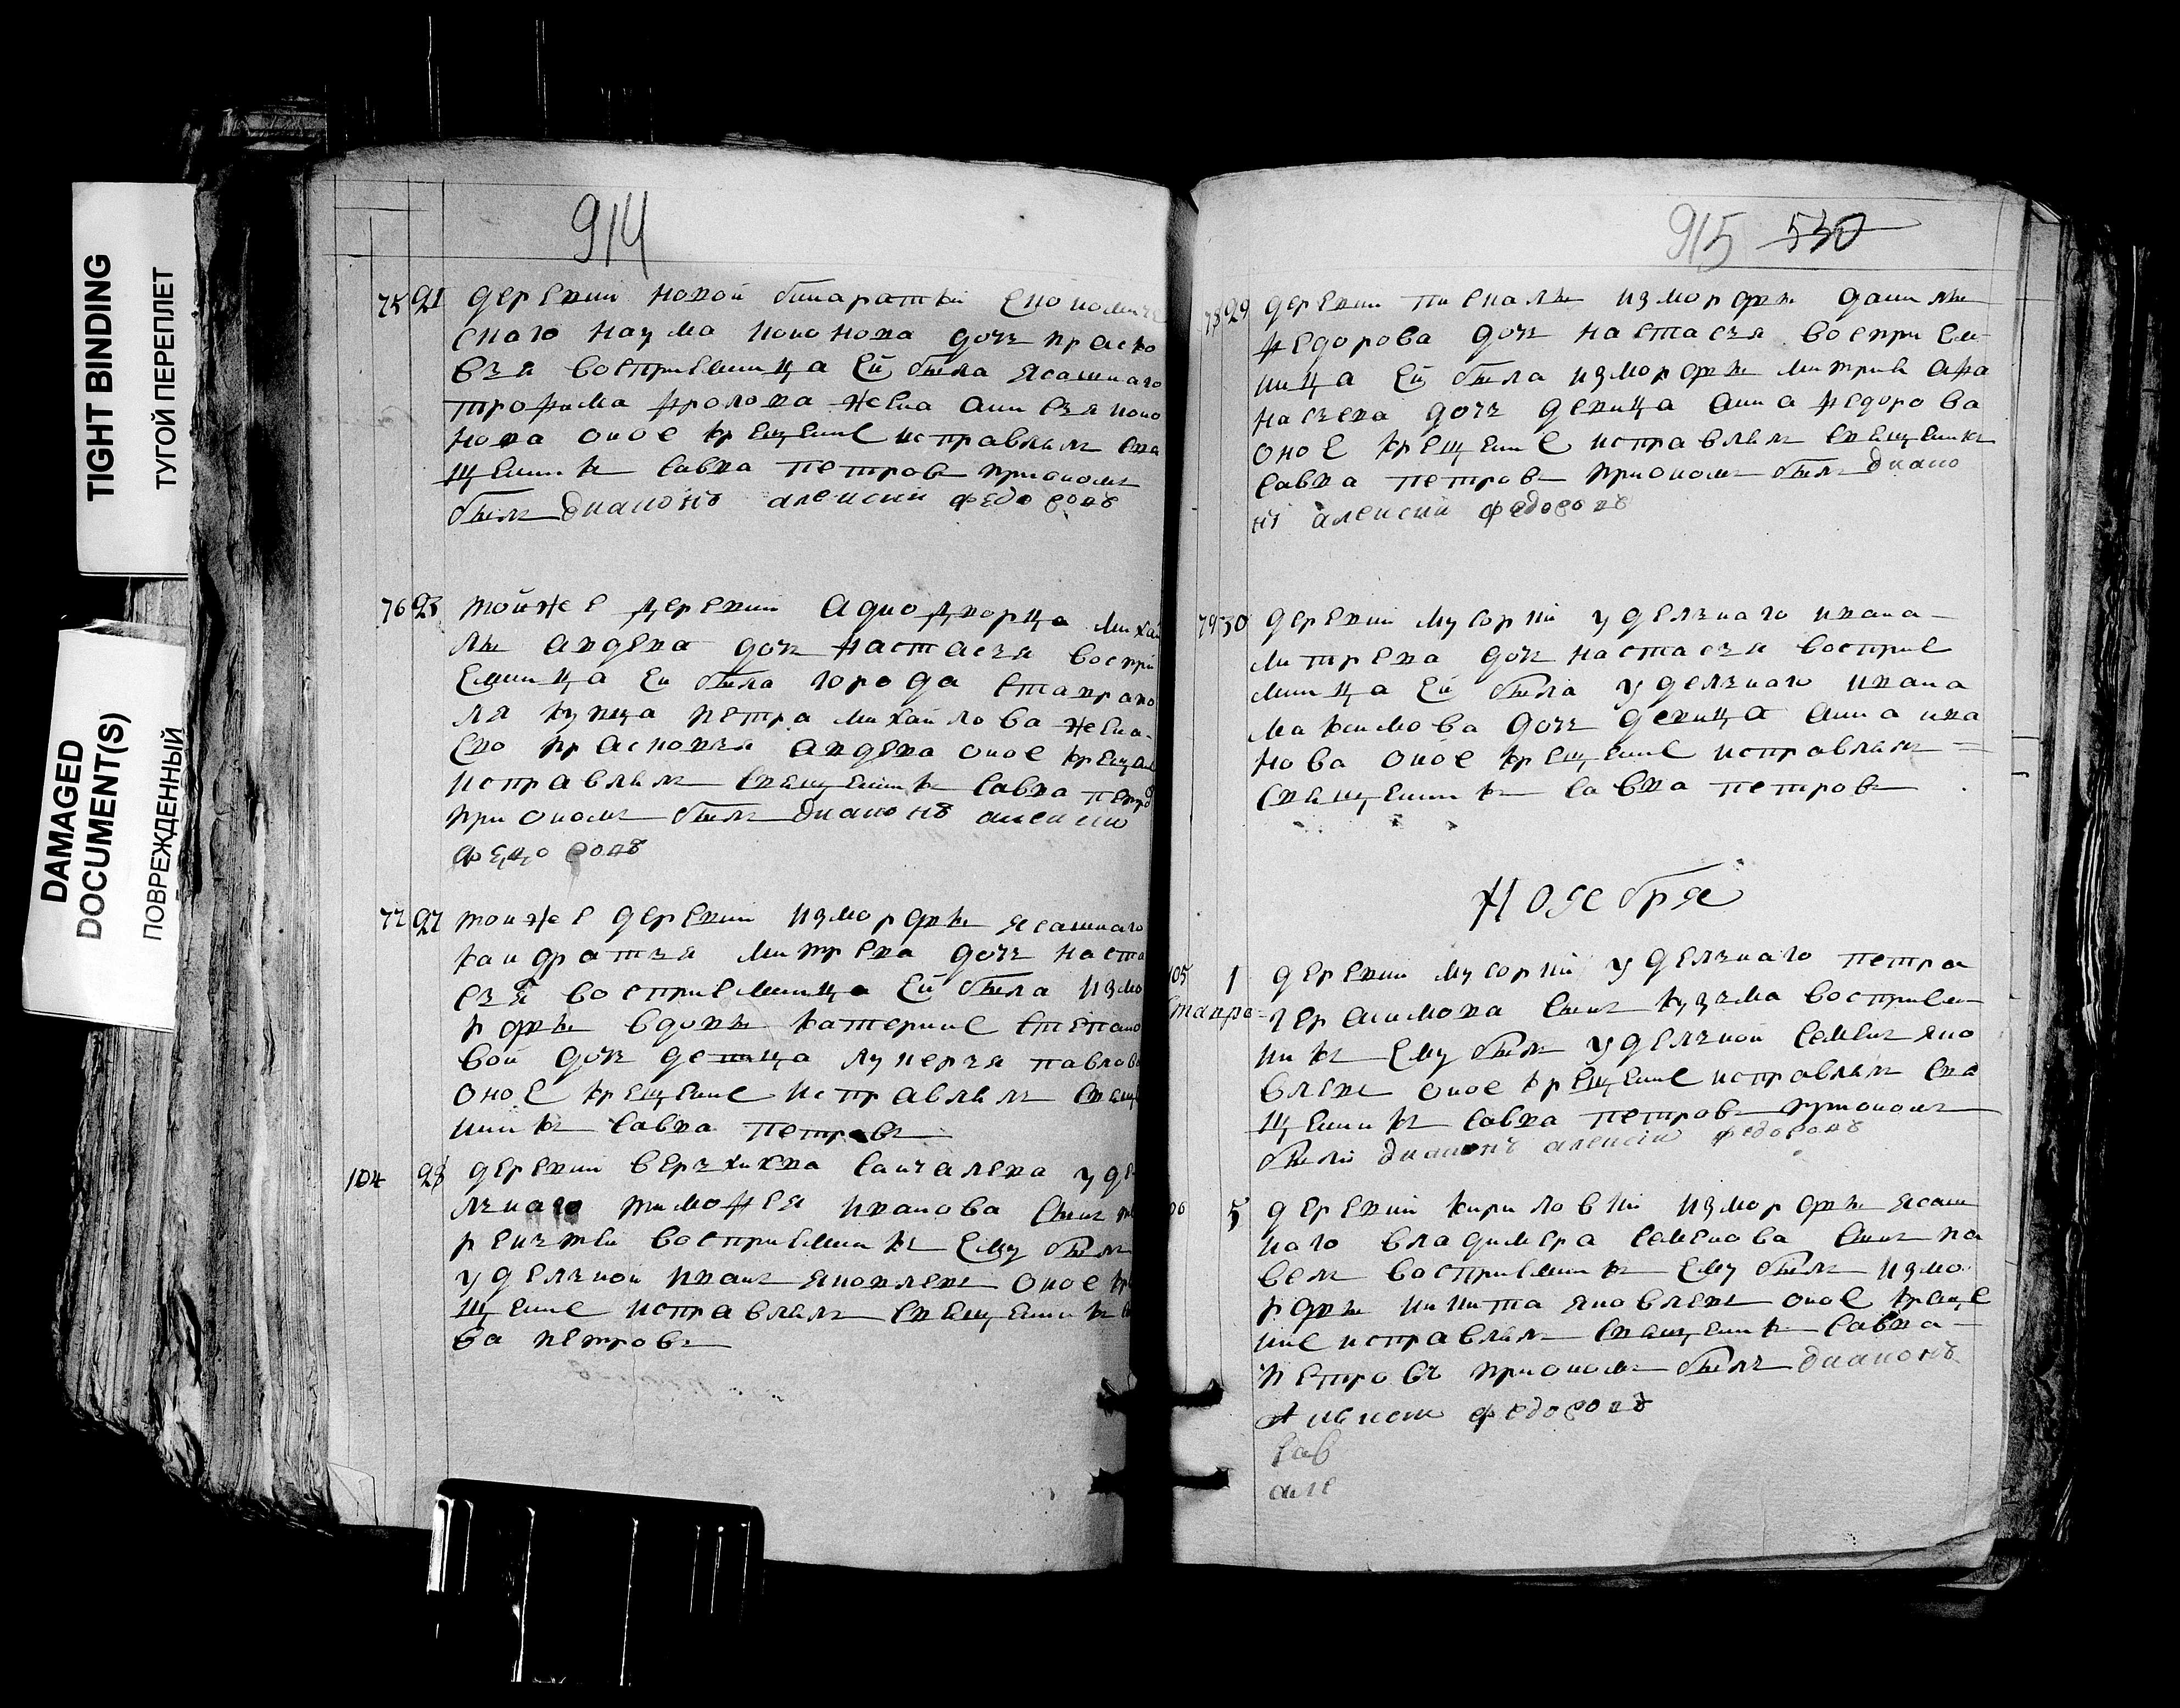 TIGHT BINDING
ТУГОЙ ПЕРЕПЛЕТ
DAMAGED
DOCUMENT(S)
ПОВРЕЖДЕННЫЙ
914
75 21 деревни новой бинаратки економиче
скаго наума кононова дочь праско
вья восприемница ей была ясашнаго
трофима фролова жена анисья коно
нова оное крещение исправлялъ свя
щенникъ савва петровъ приономъ
былъ диаконъ алексий федоровъ
76 23 тойже деревни аднодворца михай
лы авдева дочь настасья воспри
емница ей была города ставропо
ля купца петра михайлова жена
ево прасковья авдева оное крещение
исправлялъ священникъ савва петро
при ономъ былъ диаконъ алексии
федоровъ
77 27 тойже деревни измордвы ясашнаго
кандратья митрева дочь наста
сья восприемница ей была измо
рдвы вдовы катерине степано
вой дочь девица лукерья павлова
оное крещение исправлялъ свяще
нникъ савва петровъ
104 28 деревни верхнева санчалева уде
льнаго тимофея иванова сынъ
восприемникъ ему былъ
удельной иванъ яковлевъ оное кре
щение исправлялъ священникъ са
ва петровъ
915 530
78 29 деревни пискалы измордвы данилы
федорова дочь настасья восприем
ница ей была измордвы митрия афа
насьева дочь девица анна федорова
оное крещение исправлялъ священникъ
савва петровъ приономъ былъ диако
нъ алексий федоровъ
79 30 деревни мусорки удельнаго ивана
митрева дочь настасья восприе
мница ей была удельнаго ивана
максимова дочь девица анна ива
нова оное крещение исправлялъ
священникъ савва петровъ
Ноября
105 1 деревни мусорки удельнаго петра
герасимова сынъ кузьма восприем
никъ ему былъ удельной семенъ яко
влевъ оное крещение исправлялъ свя
щенникъ савва петровъ приономъ
были диаконъ алексии федоровъ
06 5 деревни кириловки измордвы ясаш
наго владимера семенова сынъ па
велъ восприемникъ ему былъ измо
рдвы никита яковлевъ оное креще
ние исправлялъ священникъ савва
петровъ приономъ былъ диаконъ
федоровъ
сав
але